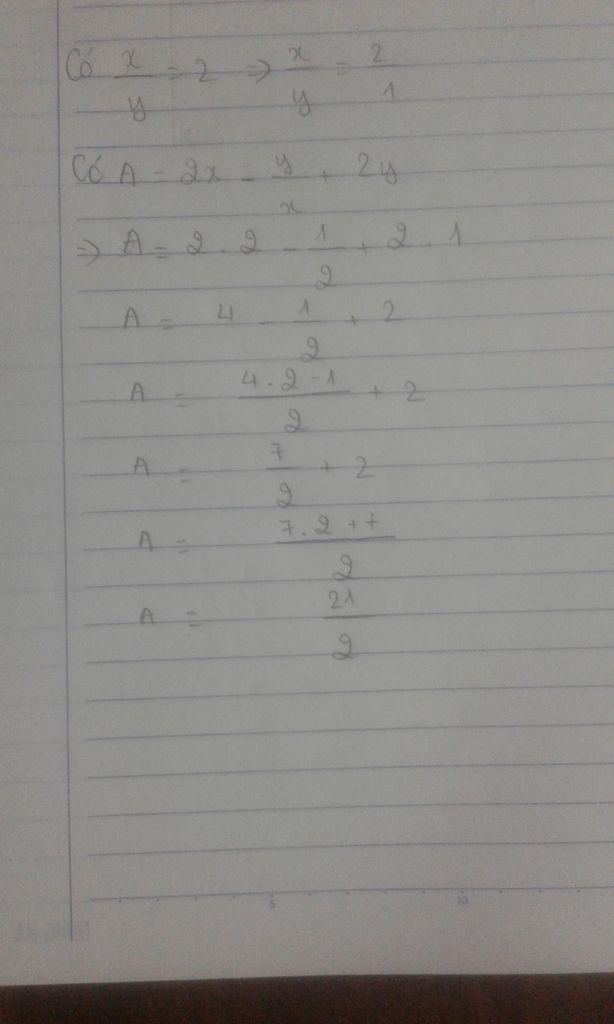 Có x/y = 2 => x/y = 2/1
Có A = 2x - y/x + 2y
=> A = 2 . 2 - 1/2 + 2 . 1
A = 4 - 1/2 + 2
A = 4.2-1/2 + 2
A = 7/2 + 2
A = 7.2+7/2
A = 21/2
5 10